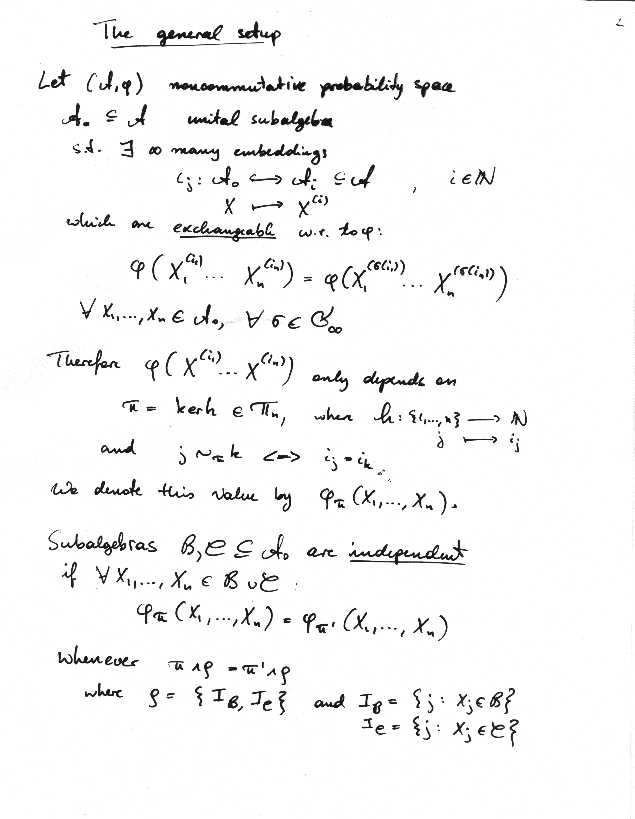 2
The general setup
Let (𝒜,φ) noncommutative probability space
𝒜₀ ⊆ 𝒜 unital subalgebra
s.t. ∃ ∞ many embeddings
ι_j : 𝒜₀ ↪ 𝒜_i ⊆ 𝒜 , i ∈ ℕ
X ↦ X^(i)
which are exchangeable w.r. to φ:
φ(X₁^(i₁) ... X_n^(i_n)) = φ(X₁^(σ(i₁)) ... X_n^(σ(i_n)))
∀ X₁,...,X_n ∈ 𝒜₀, ∀ σ ∈ 𝔖_∞
Therefore φ(X^(i₁) ... X^(i_n)) only depends on
π = ker h ∈ Π_n, when h: {1,...,n} → ℕ
j ↦ i_j
and j ~_π k <=> i_j = i_k.
We denote this value by φ_π(X₁,...,X_n).
Subalgebras ℬ,𝒞 ⊆ 𝒜₀ are independent
if ∀ X₁,..., X_n ∈ ℬ ∪ 𝒞 :
φ_π(X₁,...,X_n) = φ_π'(X₁,...,X_n)
whenever π ∧ ρ = π' ∧ ρ
where ρ = {I_ℬ, I_𝒞} and I_ℬ = {j : X_j ∈ ℬ}
I_𝒞 = {j : X_j ∈ 𝒞}